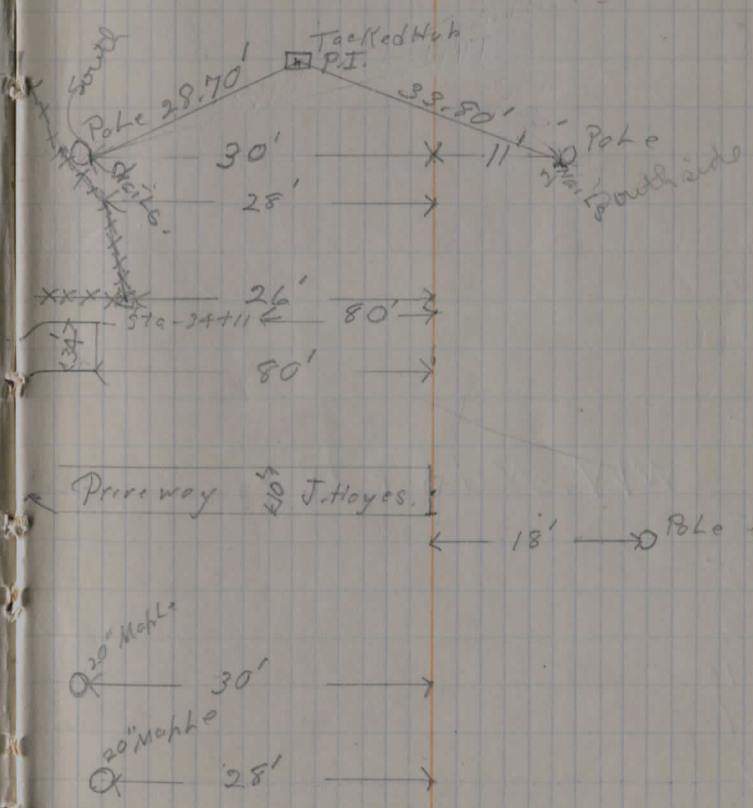 Tacked Hub
P.I.
South
28.70'
33.80'
Pole
30'
11'
Pole
2 Nails
South side
Nails.
28'
26'
Sta-34+11
80'
34'
80'
Driveway
10'
J. Hayes.
18'
Pole
20" Maple
30'
20" Maple
28'